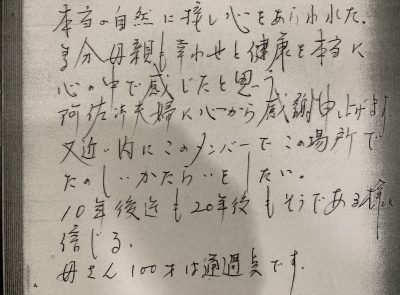 本当の自然に接し心をあらわれた。
多分母親も幸わせと健康を本当に
心の中で感じたと思う
阿佐夫婦に心から感謝申し上げます
又近い内にこのメンバーでこの場所で
たのしいかたらいをしたい。
10年後迄も20年後もそうである様に
信じる。
母さん100才は通過点です。